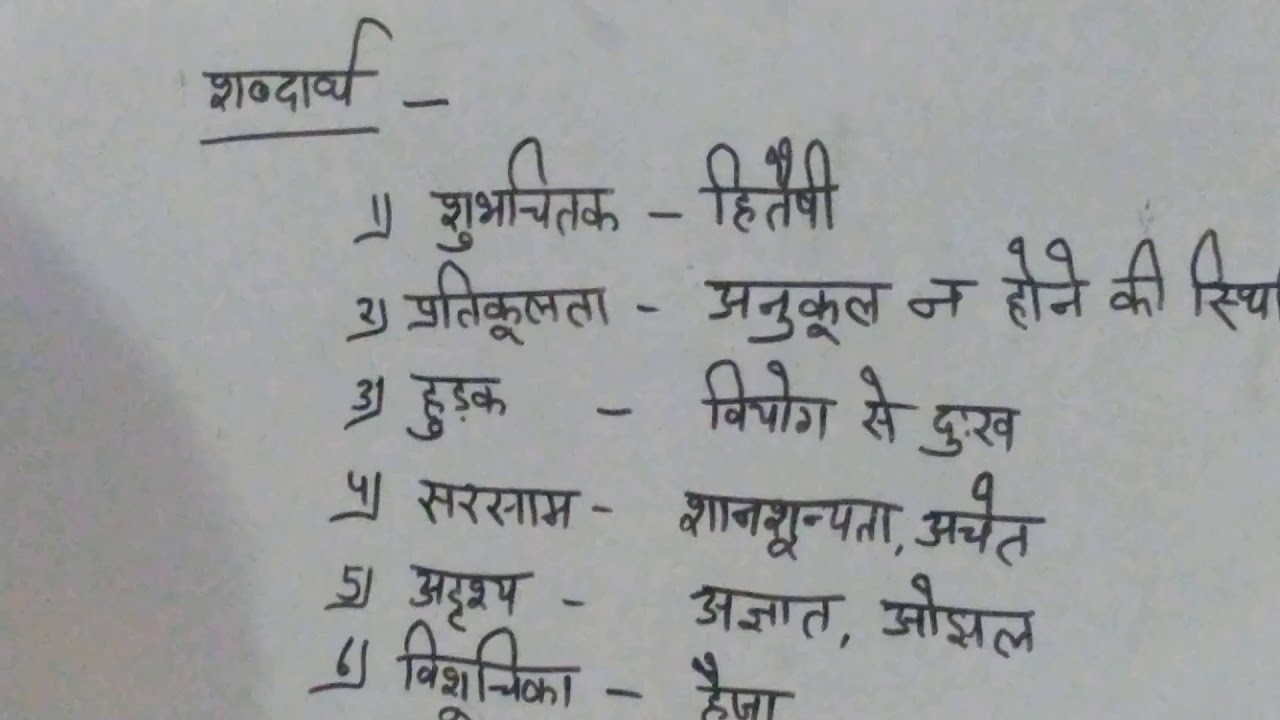 शब्दार्थ –
1) शुभचिंतक – हितैषी
2) प्रतिकूलता - अनुकूल न होने की स्थि
3) हुड़क – वियोग से दुःख
4) सरसाम - ज्ञानशून्यता, अचेत
5) अदृश्य - अज्ञात, ओझल
6) विशूचिका – हैजा